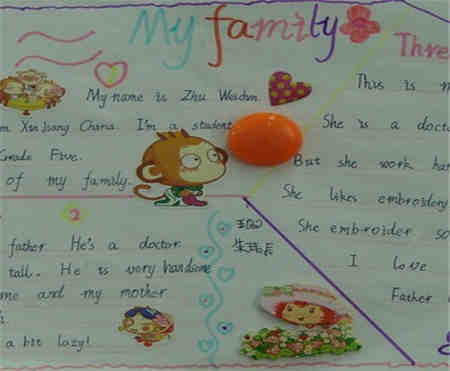 My family
1
My name is Zhu Weichen.
m Xin Jiang China. I'm a student
Grade Five.
of my family.
2
father He's a doctor
tall. He is very handsome
me and my mother
a bit lazy!
Three
This is m
She is a docto
But she work har
She likes embroidery
She embroider so
I love
Father
五(2)